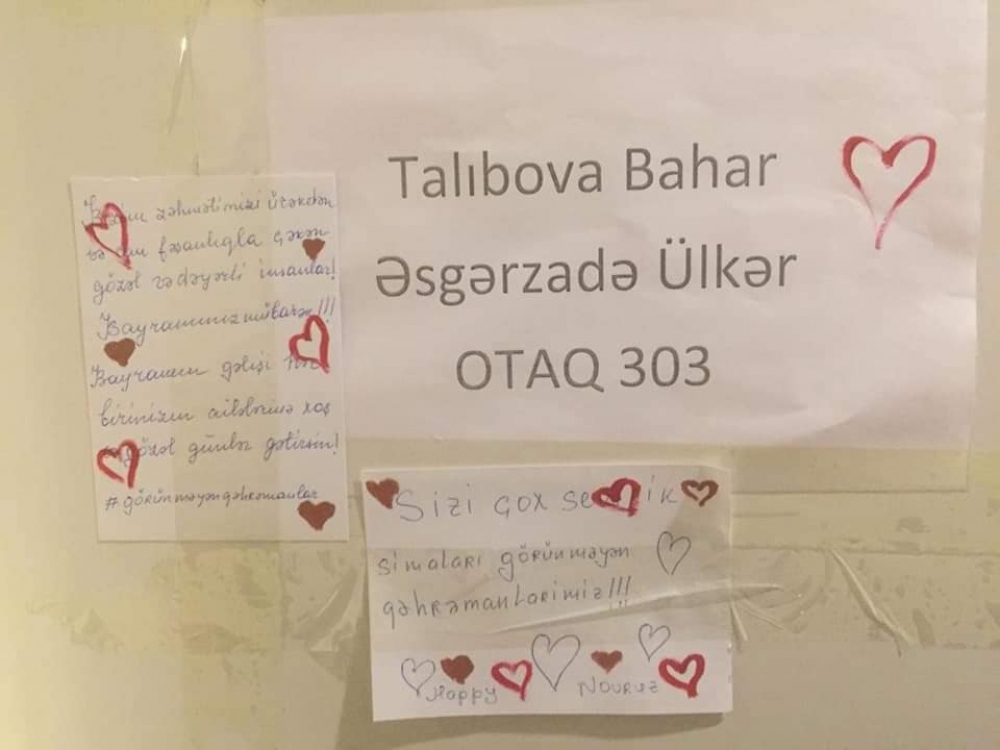 Talıbova Bahar
Əsgərzadə Ülkər
OTAQ 303
Bizim zəhmətimizi ürəkdən
və fəxarətlə çəkən
gözəl və dəyərli insanlar!
Bayramınız mübarək!!!
Bayramın gəlişi hər
birinizin ailələrinə xoş
gözəl günlər gətirsin!
#görünməyənqəhrəmanlar
Sizi çox sevirik
simaları görünməyən
qəhrəmanlarımız!!!
Happy Novruz